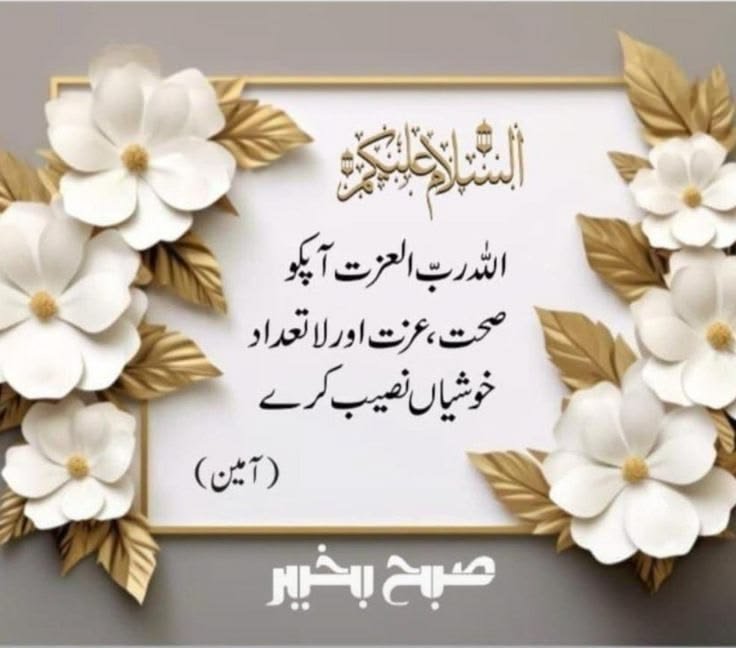 السلام علیکم
اللہ ربّ العزت آپکو
صحت،عزت اور لا تعداد
خوشیاں نصیب کرے
(آمین)
صبح بخیر